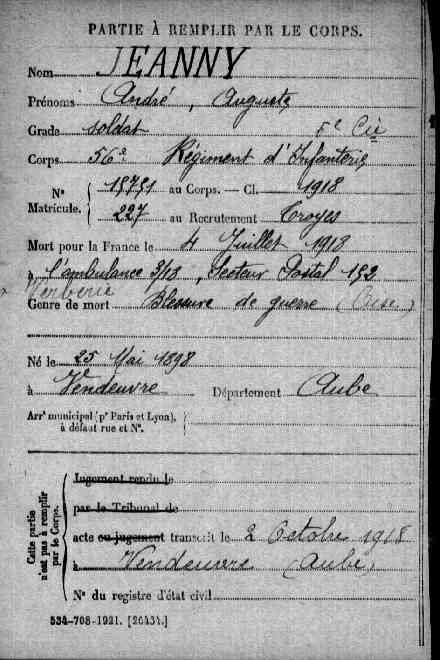 PARTIE À REMPLIR PAR LE CORPS.
Nom JEANNY
Prénoms André, Auguste
Grade soldat 5e Cie
Corps 56e Régiment d'Infanterie
N° Matricule. { 15751 au Corps. — Cl. 1918
227 au Recrutement Troyes
Mort pour la France le 4 Juillet 1918
à l'ambulance 3/18, Secteur Postal 192
Verberie
Genre de mort Blessure de guerre (Oise)
Né le 25 Mai 1898
à Vendeuvre Département Aube
Arrt municipal (pr Paris et Lyon),
à défaut rue et N°.
Cette partie n'est pas à remplir par le Corps.
Jugement rendu le
par le Tribunal de
acte ou jugement transcrit le 2 Octobre 1918
à Vendeuvre (Aube)
N° du registre d'état civil
534-708-1921. [26434.]